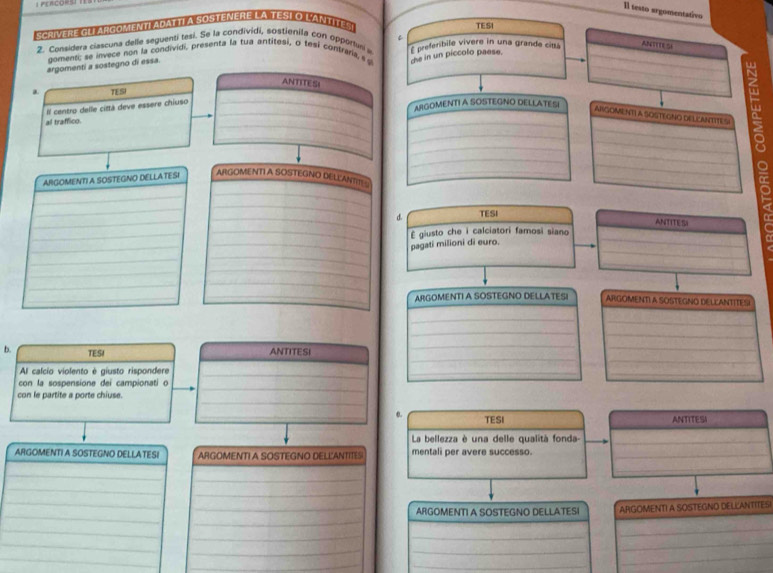 I PERCORSI
SCRIVERE GLI ARGOMENTI ADATTI A SOSTENERE LA TESI O L'ANTITESI
2. Considera ciascuna delle seguenti tesi. Se la condividi, sostienila con opportuni
gomenti; se invece non la condividi, presenta la tua antitesi, o tesi contraria, e gli
argomenti a sostegno di essa.
a.
TESI
Il centro delle città deve essere chiuso
al traffico.
ANTITESI
ARGOMENTI A SOSTEGNO DELLA TESI
ARGOMENTI A SOSTEGNO DELL'ANTITESI
b.
TESI
Al calcio violento è giusto rispondere
con la sospensione dei campionati o
con le partite a porte chiuse.
ANTITESI
ARGOMENTI A SOSTEGNO DELLA TESI
ARGOMENTI A SOSTEGNO DELL'ANTITESI
Il testo argomentativo
c.
TESI
È preferibile vivere in una grande città
che in un piccolo paese.
ANTITESI
ARGOMENTI A SOSTEGNO DELLA TESI
ARGOMENTI A SOSTEGNO DELL'ANTITESI
d.
TESI
È giusto che i calciatori famosi siano
pagati milioni di euro.
ANTITESI
ARGOMENTI A SOSTEGNO DELLA TESI
ARGOMENTI A SOSTEGNO DELL'ANTITESI
e.
TESI
La bellezza è una delle qualità fonda-
mentali per avere successo.
ANTITESI
ARGOMENTI A SOSTEGNO DELLA TESI
ARGOMENTI A SOSTEGNO DELL'ANTITESI
LABORATORIO COMPETENZE